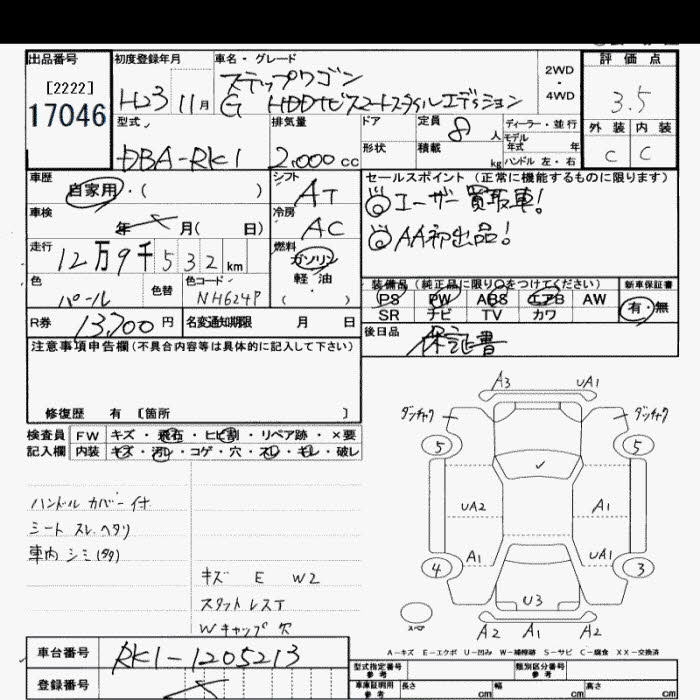 出品番号
[2222]
17046
初度登録年月
H23 11月
車名・グレード
ステップワゴン
G HDDナビスマートスタイルエディション
2WD
・
4WD
評価点
3.5
外装 内装
C C
型式
DBA-RK1
排気量
2,000 cc
ドア
形状
定員 8 人
積載 kg
ディーラー・並行
モデル
年式 年
ハンドル 左・右
車歴
自家用・( )
車検
年 月( 日)
走行
12万9千532 km
色
パール
色替
色コード
NH624P
シフト
AT
冷房
AC
燃料
ガソリン
軽・油
( )
セールスポイント(正常に機能するものに限ります)
◎ユーザー買取車!
◎AA初出品!
装備品(純正品に限り○をつけてください)
PS PW ABS エアB AW
SR ナビ TV カワ
新車保証書
有・無
R券 13,700 円
名変通知期限 月 日
後日品
保証書
注意事項申告欄(不具合内容等は具体的に記入して下さい)
修復歴 有 〔箇所 〕
検査員
記入欄
FW キズ・飛石・ヒビ割・リペア跡・×要
内装 キズ・汚れ・コゲ・穴・スレ・キレ・破レ
ハンドル カバー付
シート スレ ヘタリ
車内 シミ(多)
キズ E W2
スタットレスT
Wキャップ 欠
A3 UA1
ダンチャク ダンチャク
5 5
UA2 A1
A1 UA1
4 3
U3
スペア
A2 A1 A2
A-キズ E-エクボ U-凹み W-補修跡 S-サビ C-腐食 XX-交換済
車台番号
RK1-1205213
登録番号
型式指定番号
参考
類別区分番号
参考
車庫証明用
参考
長さ cm 幅 cm 高さ cm